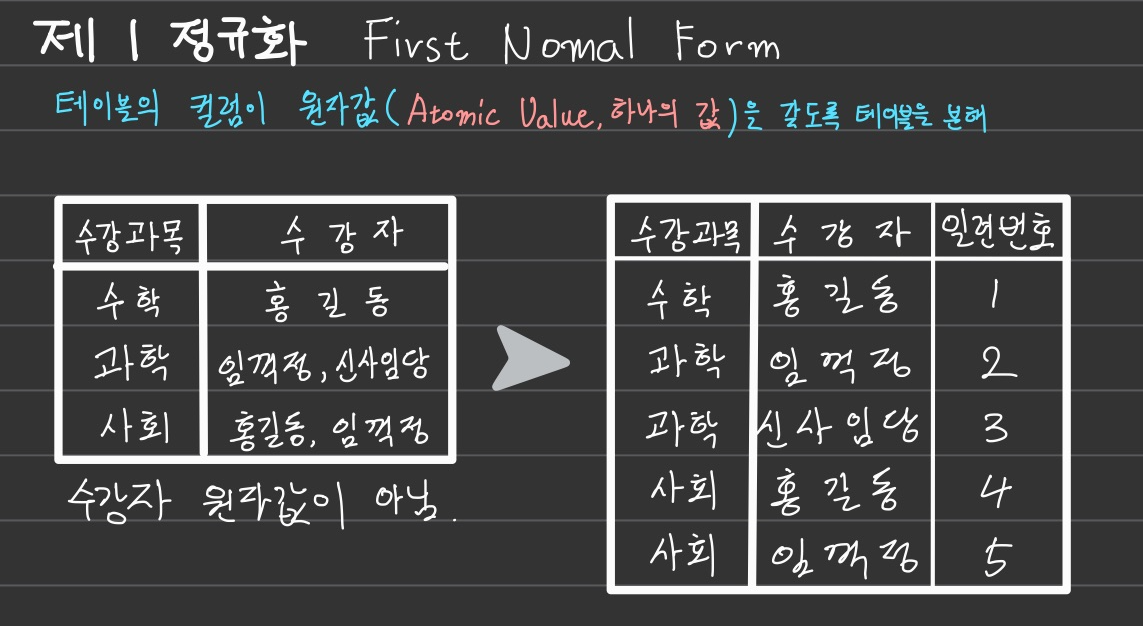 제 1 정규화 First Nomal Form
테이블의 컬럼이 원자값(Atomic Value, 하나의 값)을 갖도록 테이블을 분해
수강과목 수강자
수학 홍길동
과학 임꺽정, 신사임당
사회 홍길동, 임꺽정
수강자 원자값이 아님.
수강과목 수강자 일련번호
수학 홍길동 1
과학 임꺽정 2
과학 신사임당 3
사회 홍길동 4
사회 임꺽정 5